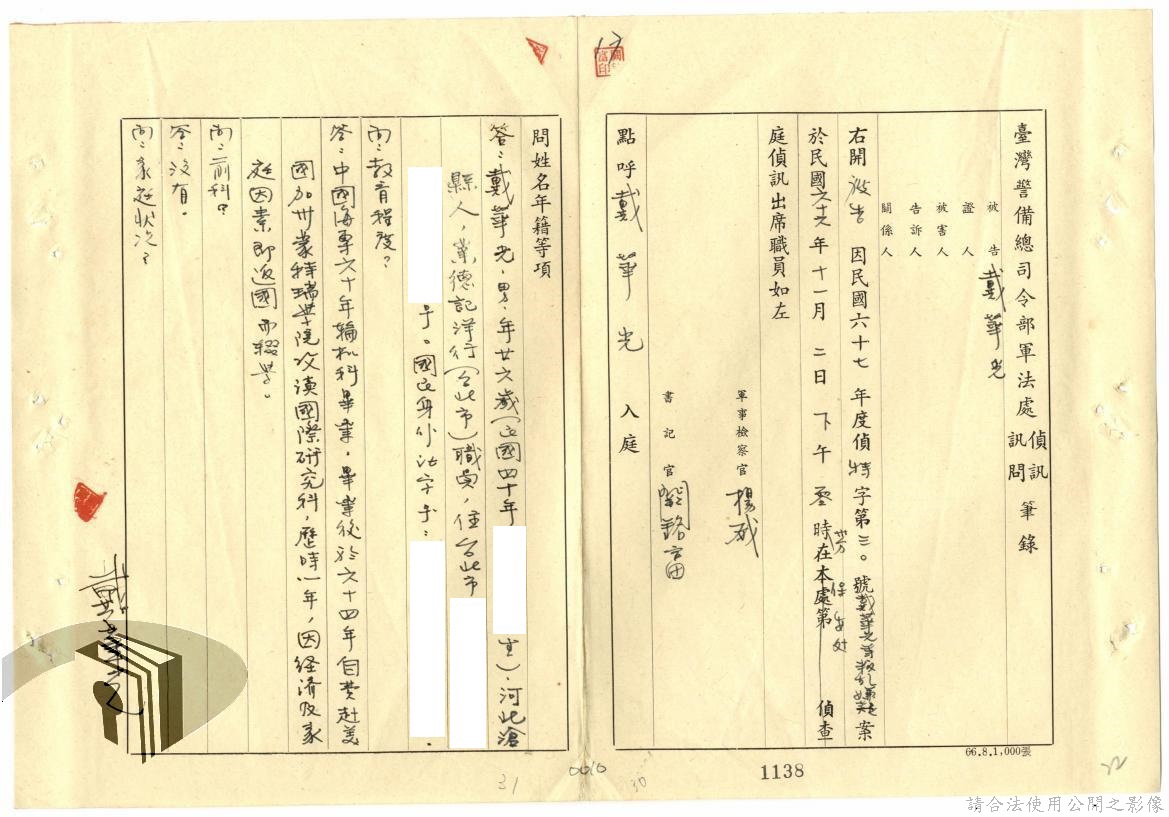 臺灣警備總司令部軍法處偵訊訊問筆錄
被告 戴華光
證人
被害人
告訴人
關係人
右開被告因民國六十七年度偵特字第三〇號戴華光等叛亂嫌疑案
於民國六十六年十一月二日下午 時在本處第 偵查
勞
保安處
庭偵訊出席職員如左
軍事檢察官 楊
書記官
點呼戴華光入庭
問姓名年籍等項
答:戴華光,男,年廿六歲(民國四十年 生),河北滄
縣人,業德記洋行(台北市)職員,住台北市
號。國民身分證字號:
問:教育程度?
答:中國海專六十年輪机科畢業,畢業後於六十四年自費赴美
國加州蒙特瑞學院攻讀國際研究科,歷時一年,因經濟及家
庭因素即返國而輟學。
問:前科?
答:沒有。
問:家庭狀況?
戴華光
66.8.1,000張
1138
0010
31
30
32
17
請合法使用公開之影像